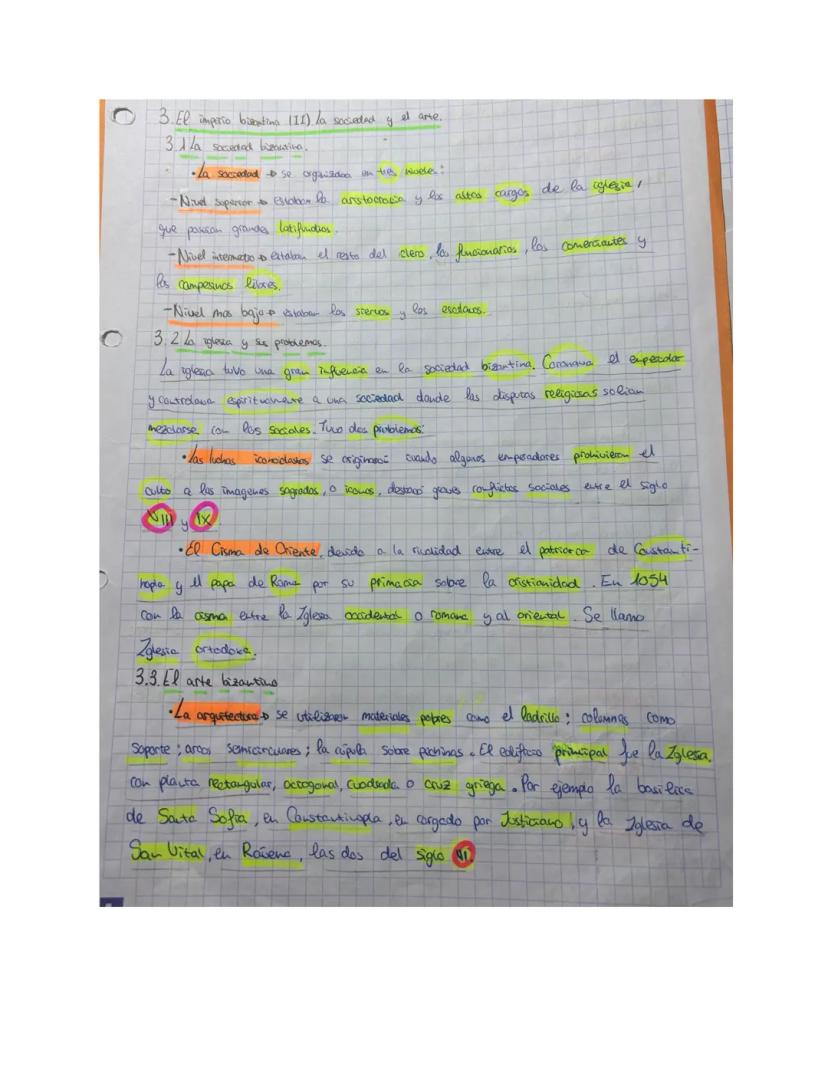 3. El imperio bizantino (II) la sociedad y el arte.
3.1 La sociedad bizantina.
• La sociedad → se organizaba en tres niveles:
- Nivel superior → estaban la aristocracia y los altos cargos de la iglesia,
que poseían grandes latifundios.
- Nivel intermedio → estaban el resto del clero, los funcionarios, los comerciantes y
los campesinos libres.
- Nivel mas bajo → estaban los siervos y los esclavos.
3.2 La iglesia y sus problemas.
La iglesia tuvo una gran influencia en la sociedad bizantina. Coronava el emperador
y controlava espiritualmente a una sociedad donde las disputas religiosas solian
mezclarse con los sociales. Tuvo dos problemas:
• Las luchas iconoclastas se originaron cuando algunos emperadores prohivieron el
culto a las imagenes sagradas, o iconos, desató graves conflictos sociales entre el siglo
VIII y IX.
• El Cisma de Oriente, devido a la rivalidad entre el patriarca de Constanti-
nopla y el papa de Roma por su primacia sobre la cristianidad. En 1054
con la cisma entre la Iglesia occidental o romana y al oriental. Se llamo
Iglesia ortodoxa.
3.3. El arte bizantino
• La arquitectura → se utilizaron materiales pobres como el ladrillo; columnas como
soporte; arcos semicirculares; la cúpula sobre pechinas. El edificio principal fue la Iglesia,
con planta rectangular, octogonal, cuadrada o cruz griega. Por ejemplo la basilica
de Santa Sofia, en Constantinopla, en cargado por Justiciano, y la Iglesia de
San Vital, en Ravena, las dos del siglo VI.